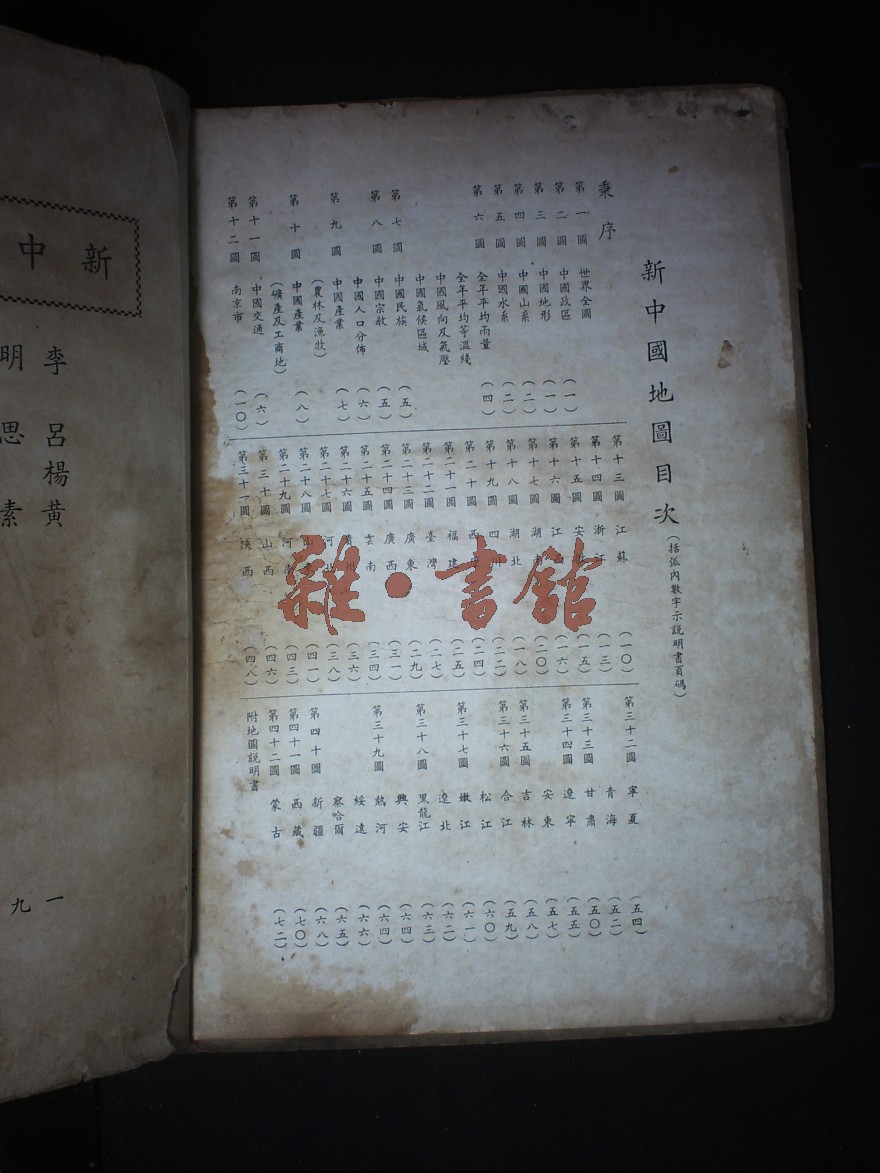 新中國地圖目次(括弧內數字示説明書頁碼)
秉序
第一圖 世界全圖
第二圖 中國政區 (一)
第三圖 中國地形 (一)
第四圖 中國山系 (二)
第五圖 中國水系 (二)
第六圖 全年平均雨量 (四)
全年平均等溫綫
中國風向及氣壓
中國氣候區域
第七圖 中國民族 (五)
第八圖 中國宗教 (五)
中國人口分佈 (六)
第九圖 中國產業 (七)
(農林及漁牧)
第十圖 中國產業 (八)
(礦產及工商地)
第十一圖 中國交通 (六)
第十二圖 南京市 (一〇)
第十三圖 江蘇 (一〇)
第十四圖 浙江 (一三)
第十五圖 安 (一五)
第十六圖 江 (一六)
第十七圖 湖南 (二〇)
第十八圖 湖北 (一八)
第十九圖 四川 (二二)
第二十圖 西康 (二四)
第二十一圖 福建 (二五)
第二十二圖 臺灣 (二七)
第二十三圖 廣東 (二九)
第二十四圖 廣西 (三一)
第二十五圖 雲南 (三四)
第二十六圖 貴州 (三六)
第二十七圖 河北 (三八)
第二十八圖 山東 (四一)
第二十九圖 河南 (四三)
第三十圖 山西 (四六)
第三十一圖 陝西 (四八)
第三十二圖 寧夏 (五四)
青海 (五二)
第三十三圖 甘肅 (五〇)
第三十四圖 遼寧 (五五)
安東 (五七)
第三十五圖 吉林 (五八)
第三十六圖 合江 (五九)
松江 (六〇)
第三十七圖 嫩江 (六一)
遼北 (六二)
第三十八圖 黑龍江 (六三)
興安 (六四)
第三十九圖 熱河 (六四)
綏遠 (六六)
察哈爾 (六五)
第四十圖 新疆 (六八)
第四十一圖 西藏 (七〇)
第四十二圖 蒙古 (七二)
附地圖説明書
雜·書館
新中
李明
呂思
楊
黃素
一九